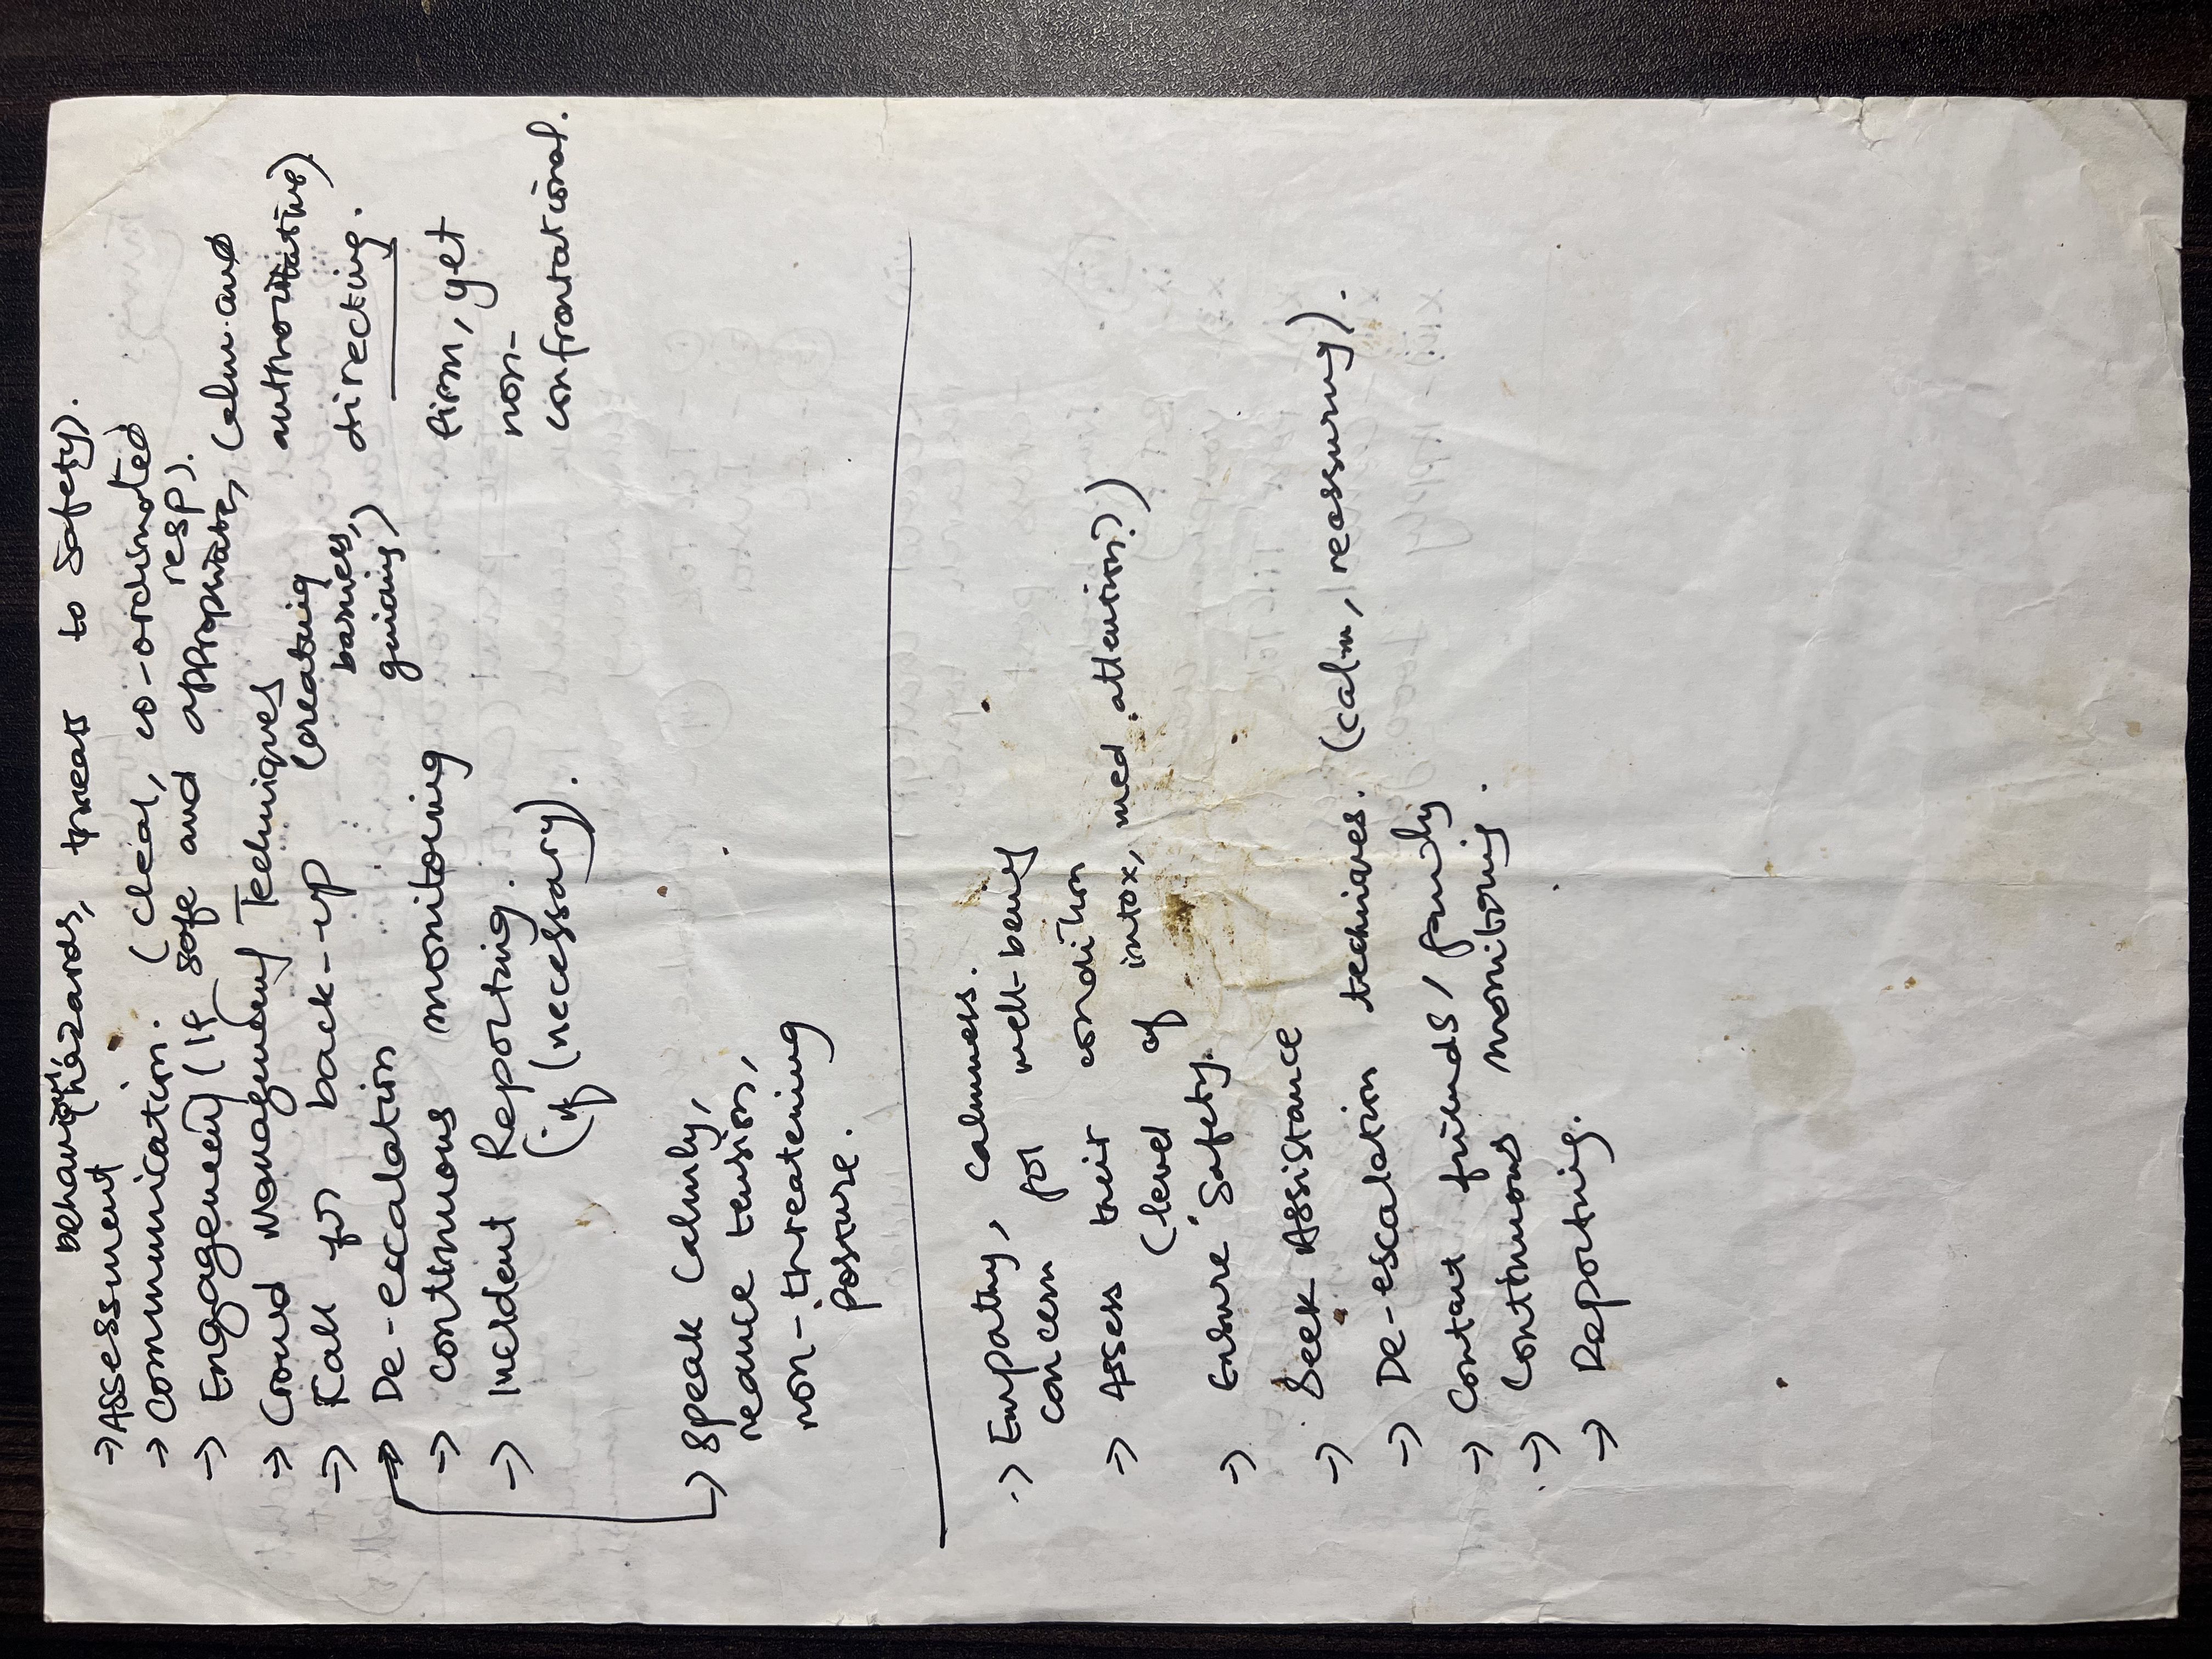 behaviour, hazards, threats to safety).
→ Assessment
→ Communication. (clear, co-ordinated resp).
→ Engagement (if safe and appropriate, calm and authoritative)
→ Crowd Management Techniques (creating barriers, guiding) directing.
→ Call for back-up
→ De-eccalation firm, yet non-confrontational.
→ continuous monitoring
→ Incident Reporting.
(if (necessary).
→ Speak Calmly,
reduce tension,
non-threatening
posture.
→ Empathy, calmness.
concern for well-being
→ Assess their condition
(level of intox, med attention?)
→ Ensure Safety.
→ Seek Assistance
→ De-escalation techniques. (calm, reassuring).
→ Contact friends / family
→ Continuous monitoring.
→ Reporting.